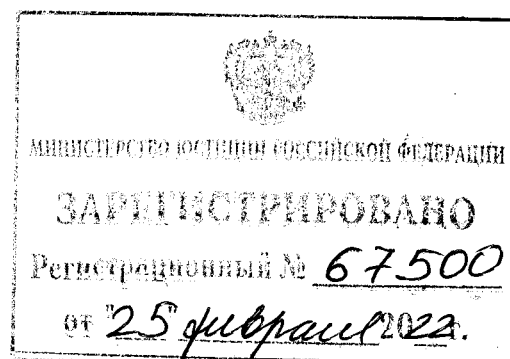 МИНИСТЕРСТВО ЮСТИЦИИ РОССИЙСКОЙ ФЕДЕРАЦИИ
ЗАРЕГИСТРИРОВАНО
Регистрационный № 67500
от "25" февраля 2022г.